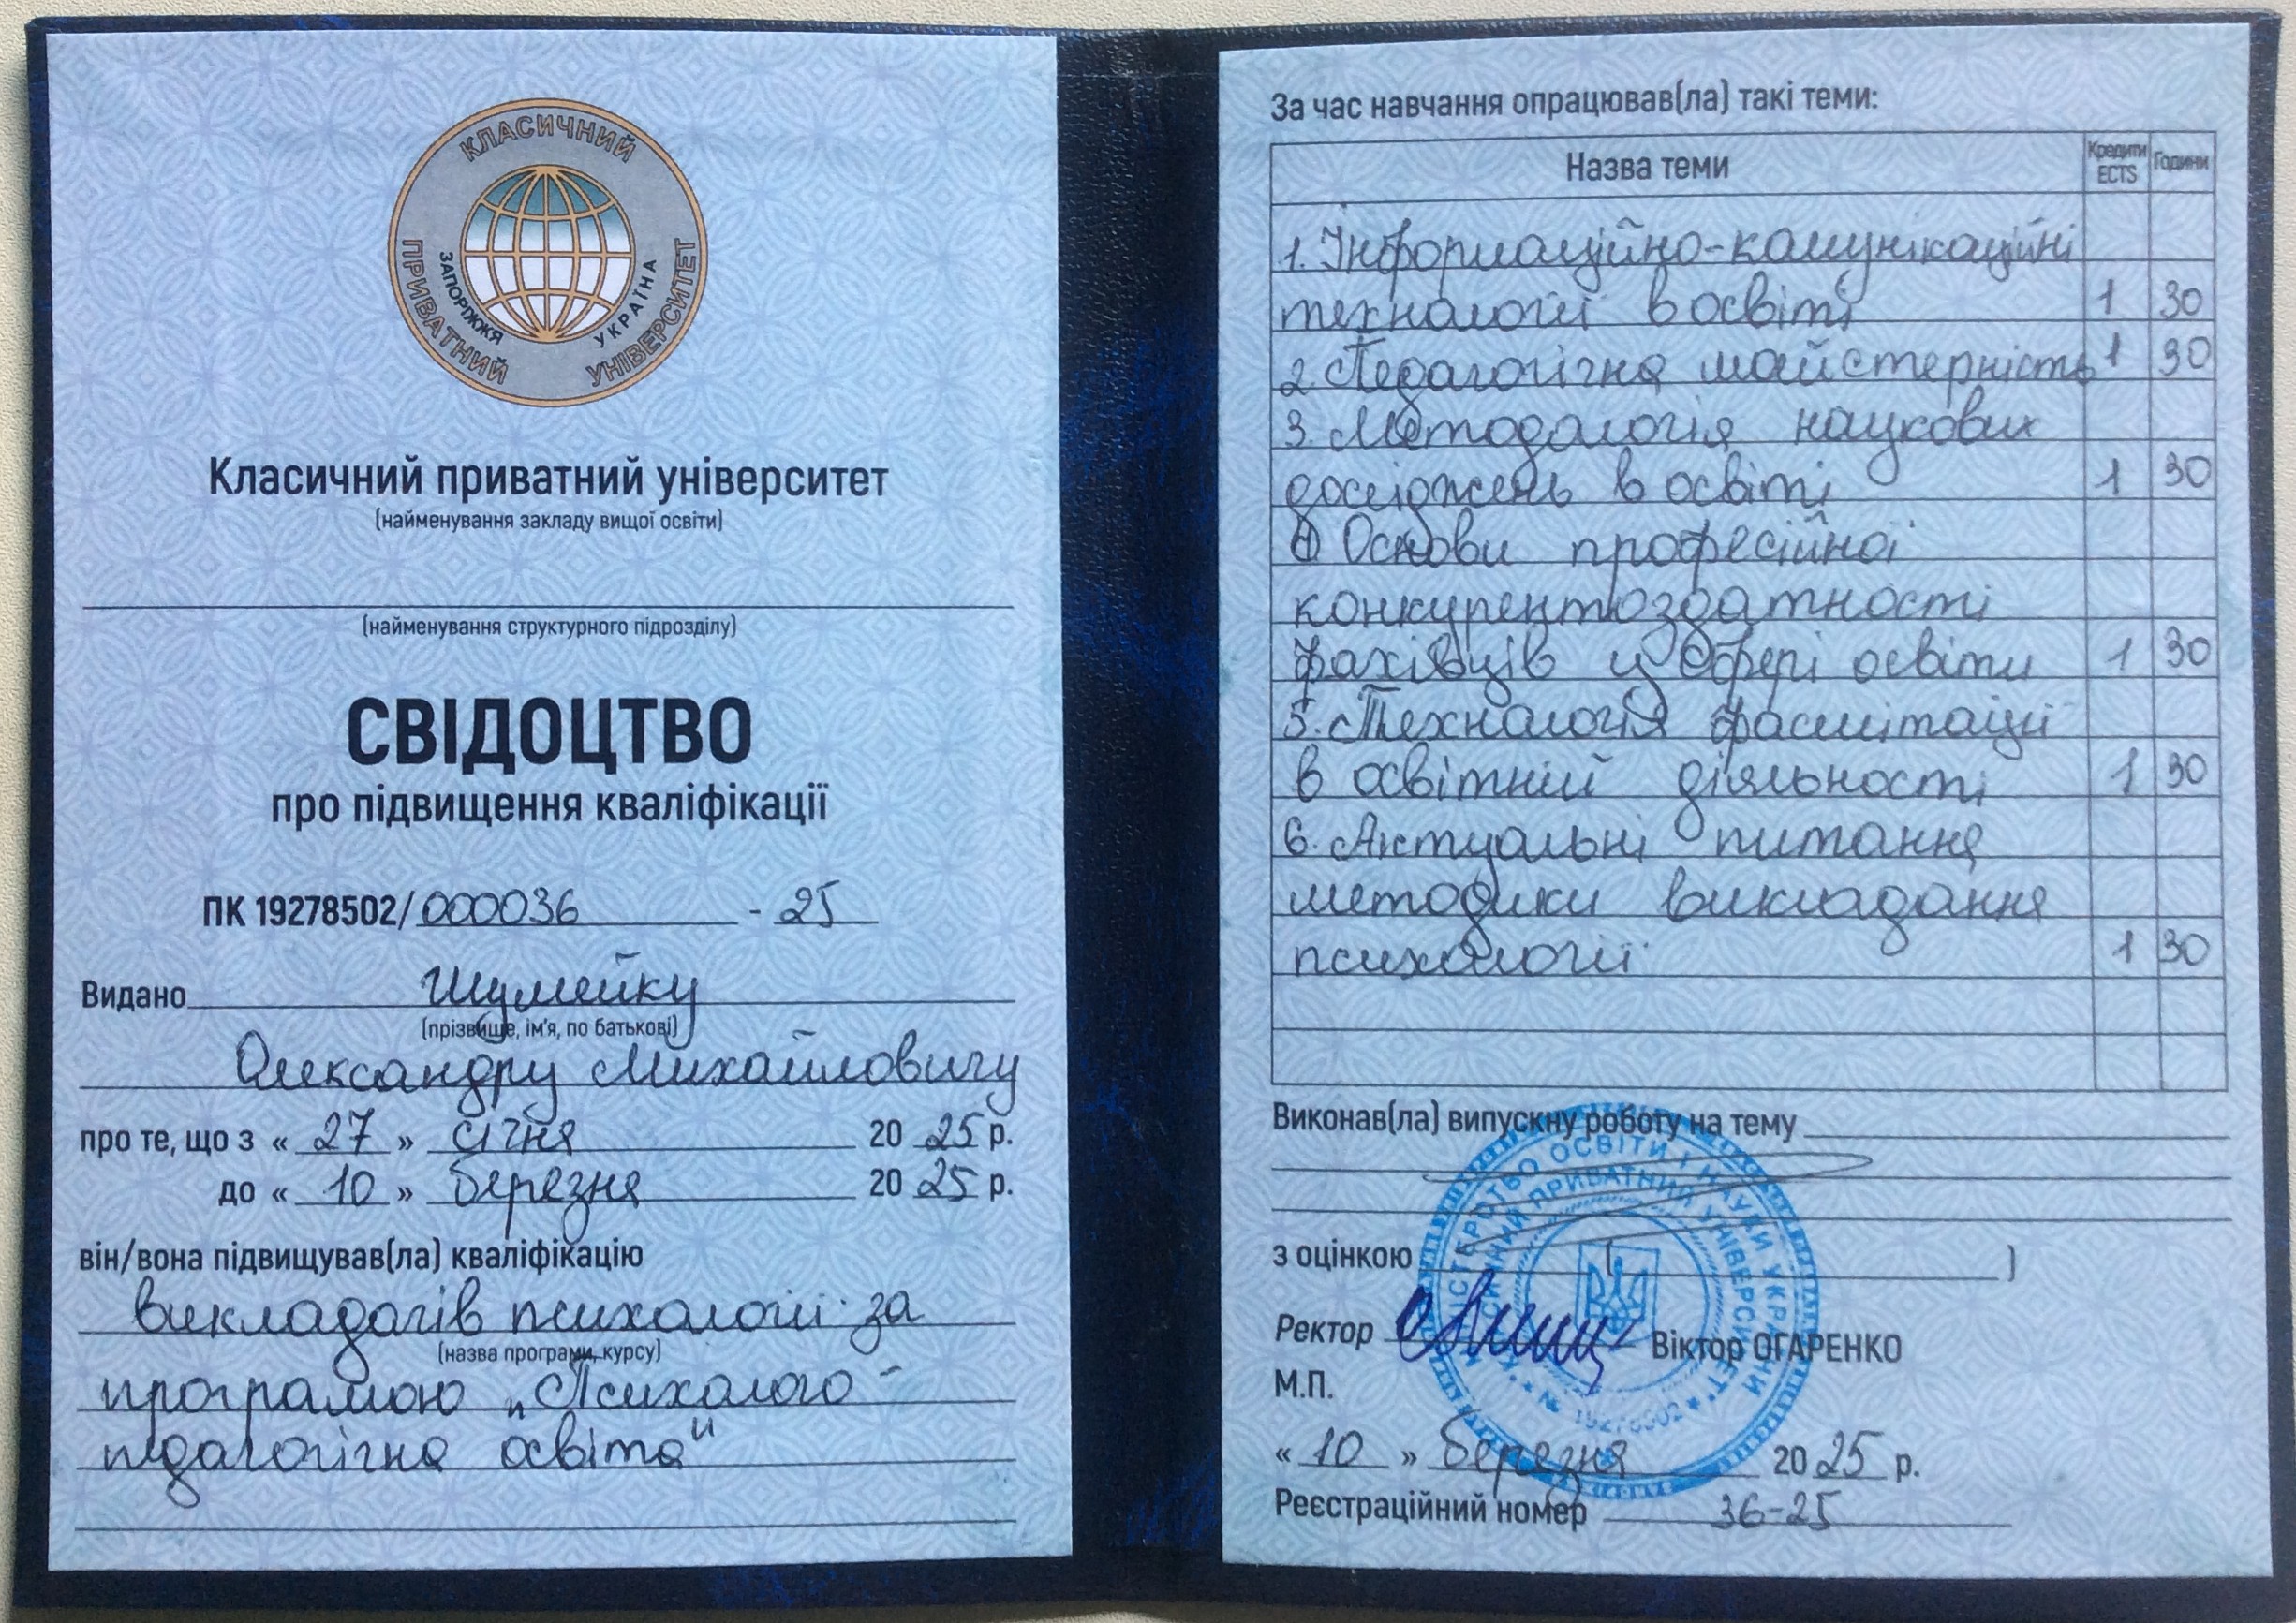 КЛАСИЧНИЙ
ПРИВАТНИЙ
УНІВЕРСИТЕТ
ЗАПОРІЖЖЯ
УКРАЇНА
Класичний приватний університет
(найменування закладу вищої освіти)
(найменування структурного підрозділу)
СВІДОЦТВО
про підвищення кваліфікації
ПК 19278502/000036 - 25
Видано Шумейку
(прізвище, ім'я, по батькові)
Олександру Михайловичу
про те, що з « 27 » січня 20 25 р.
до « 10 » березня 20 25 р.
він/вона підвищував(ла) кваліфікацію
викладачів психології за
(назва програми, курсу)
програмою „Психолого-
педагогічна освіта"
За час навчання опрацював(ла) такі теми:
Назва теми Кредити ECTS Години
1. Інформаційно-комунікаційні
технології в освіті 1 30
2. Педагогічна майстерність 1 30
3. Методологія наукових
досліджень в освіті 1 30
4) Основи професійної
конкурентоздатності
фахівців у сфері освіти 1 30
5. Технологія фасилітації
в освітній діяльності 1 30
6. Актуальні питання
методики викладання
психології 1 30
Виконав(ла) випускну роботу на тему
з оцінкою ( )
Ректор Віктор ОГАРЕНКО
М.П.
« 10 » березня 20 25 р.
Реєстраційний номер 36-25
МІНІСТЕРСТВО ОСВІТИ І НАУКИ УКРАЇНИ
КЛАСИЧНИЙ ПРИВАТНИЙ УНІВЕРСИТЕТ
№ 19278502